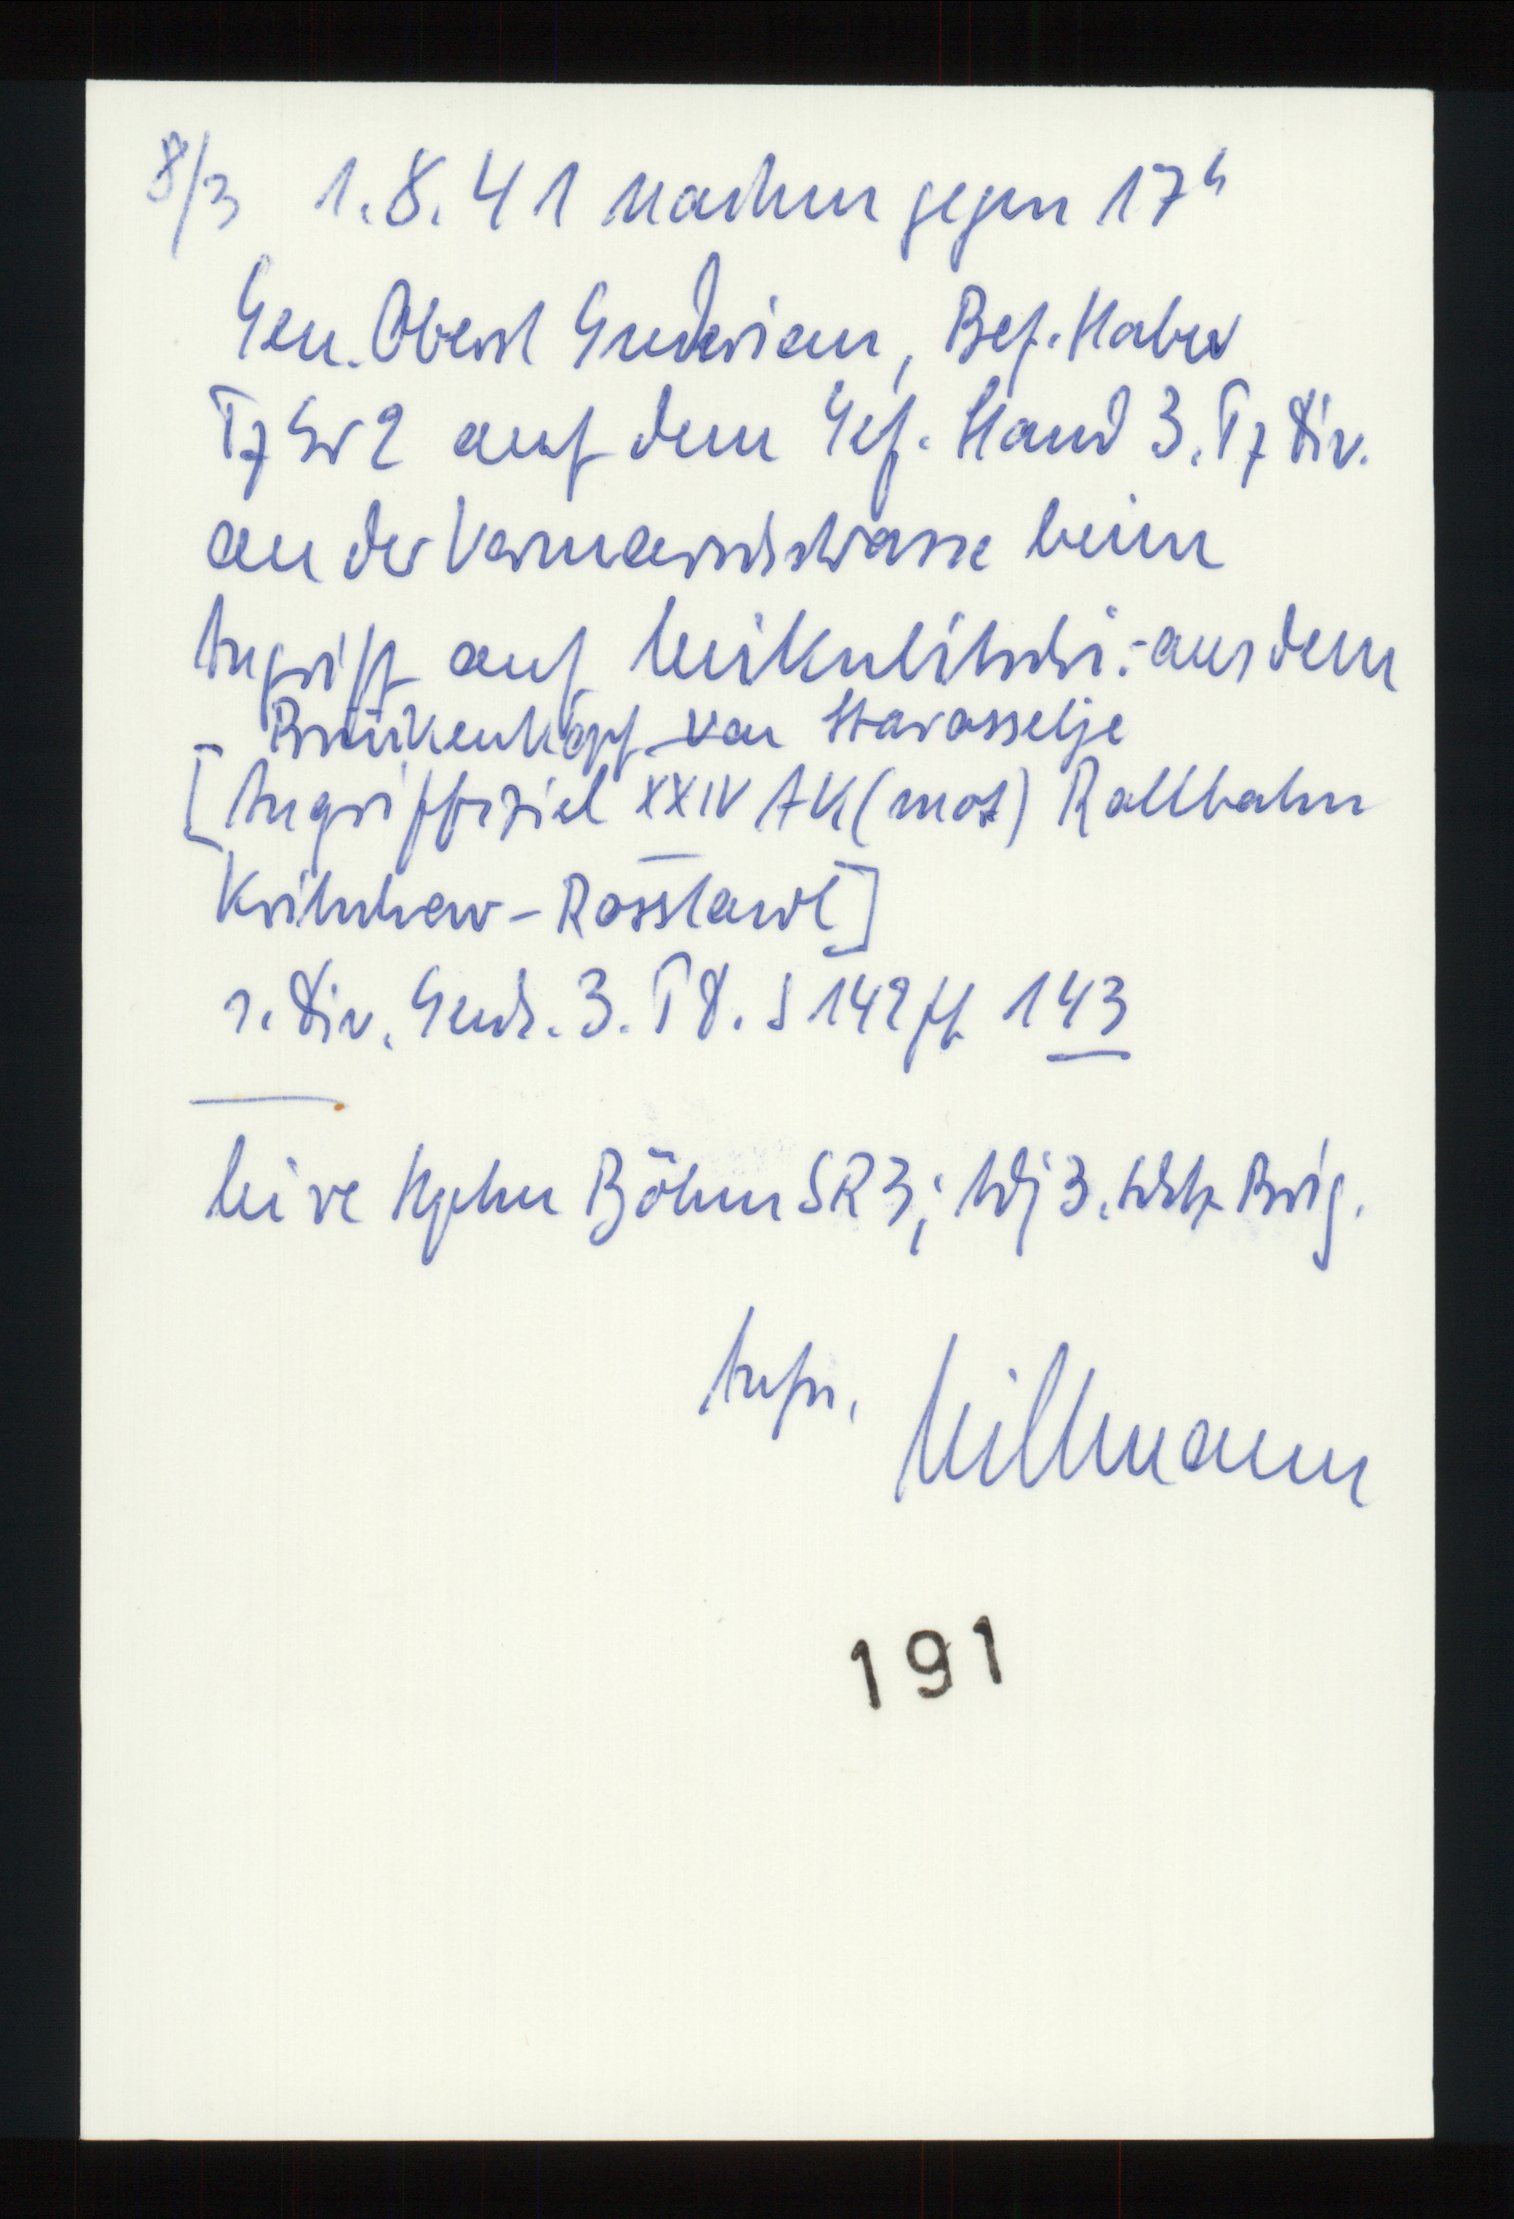 8/3 1.8.41 Nachm gegen 17h
Gen. Oberst Guderian, Bef. Haber
Pz Gr 2 auf dem Gef. Stand 3. Pz Div.
an der Vormarschstrasse beim
Angriff auf Mikulitschi.- aus dem
Brückenkopf von Starosselje
[Angriffsziel XXIV AK (mot) Rollbahn
Kritschew - Rosslawl]
s. Div. Gesch. 3. PD. S 142 ff 143
li ve Hptm Böhm SR 3; Adj 3. Schtz Brig.
Aufn. Dillmann
191